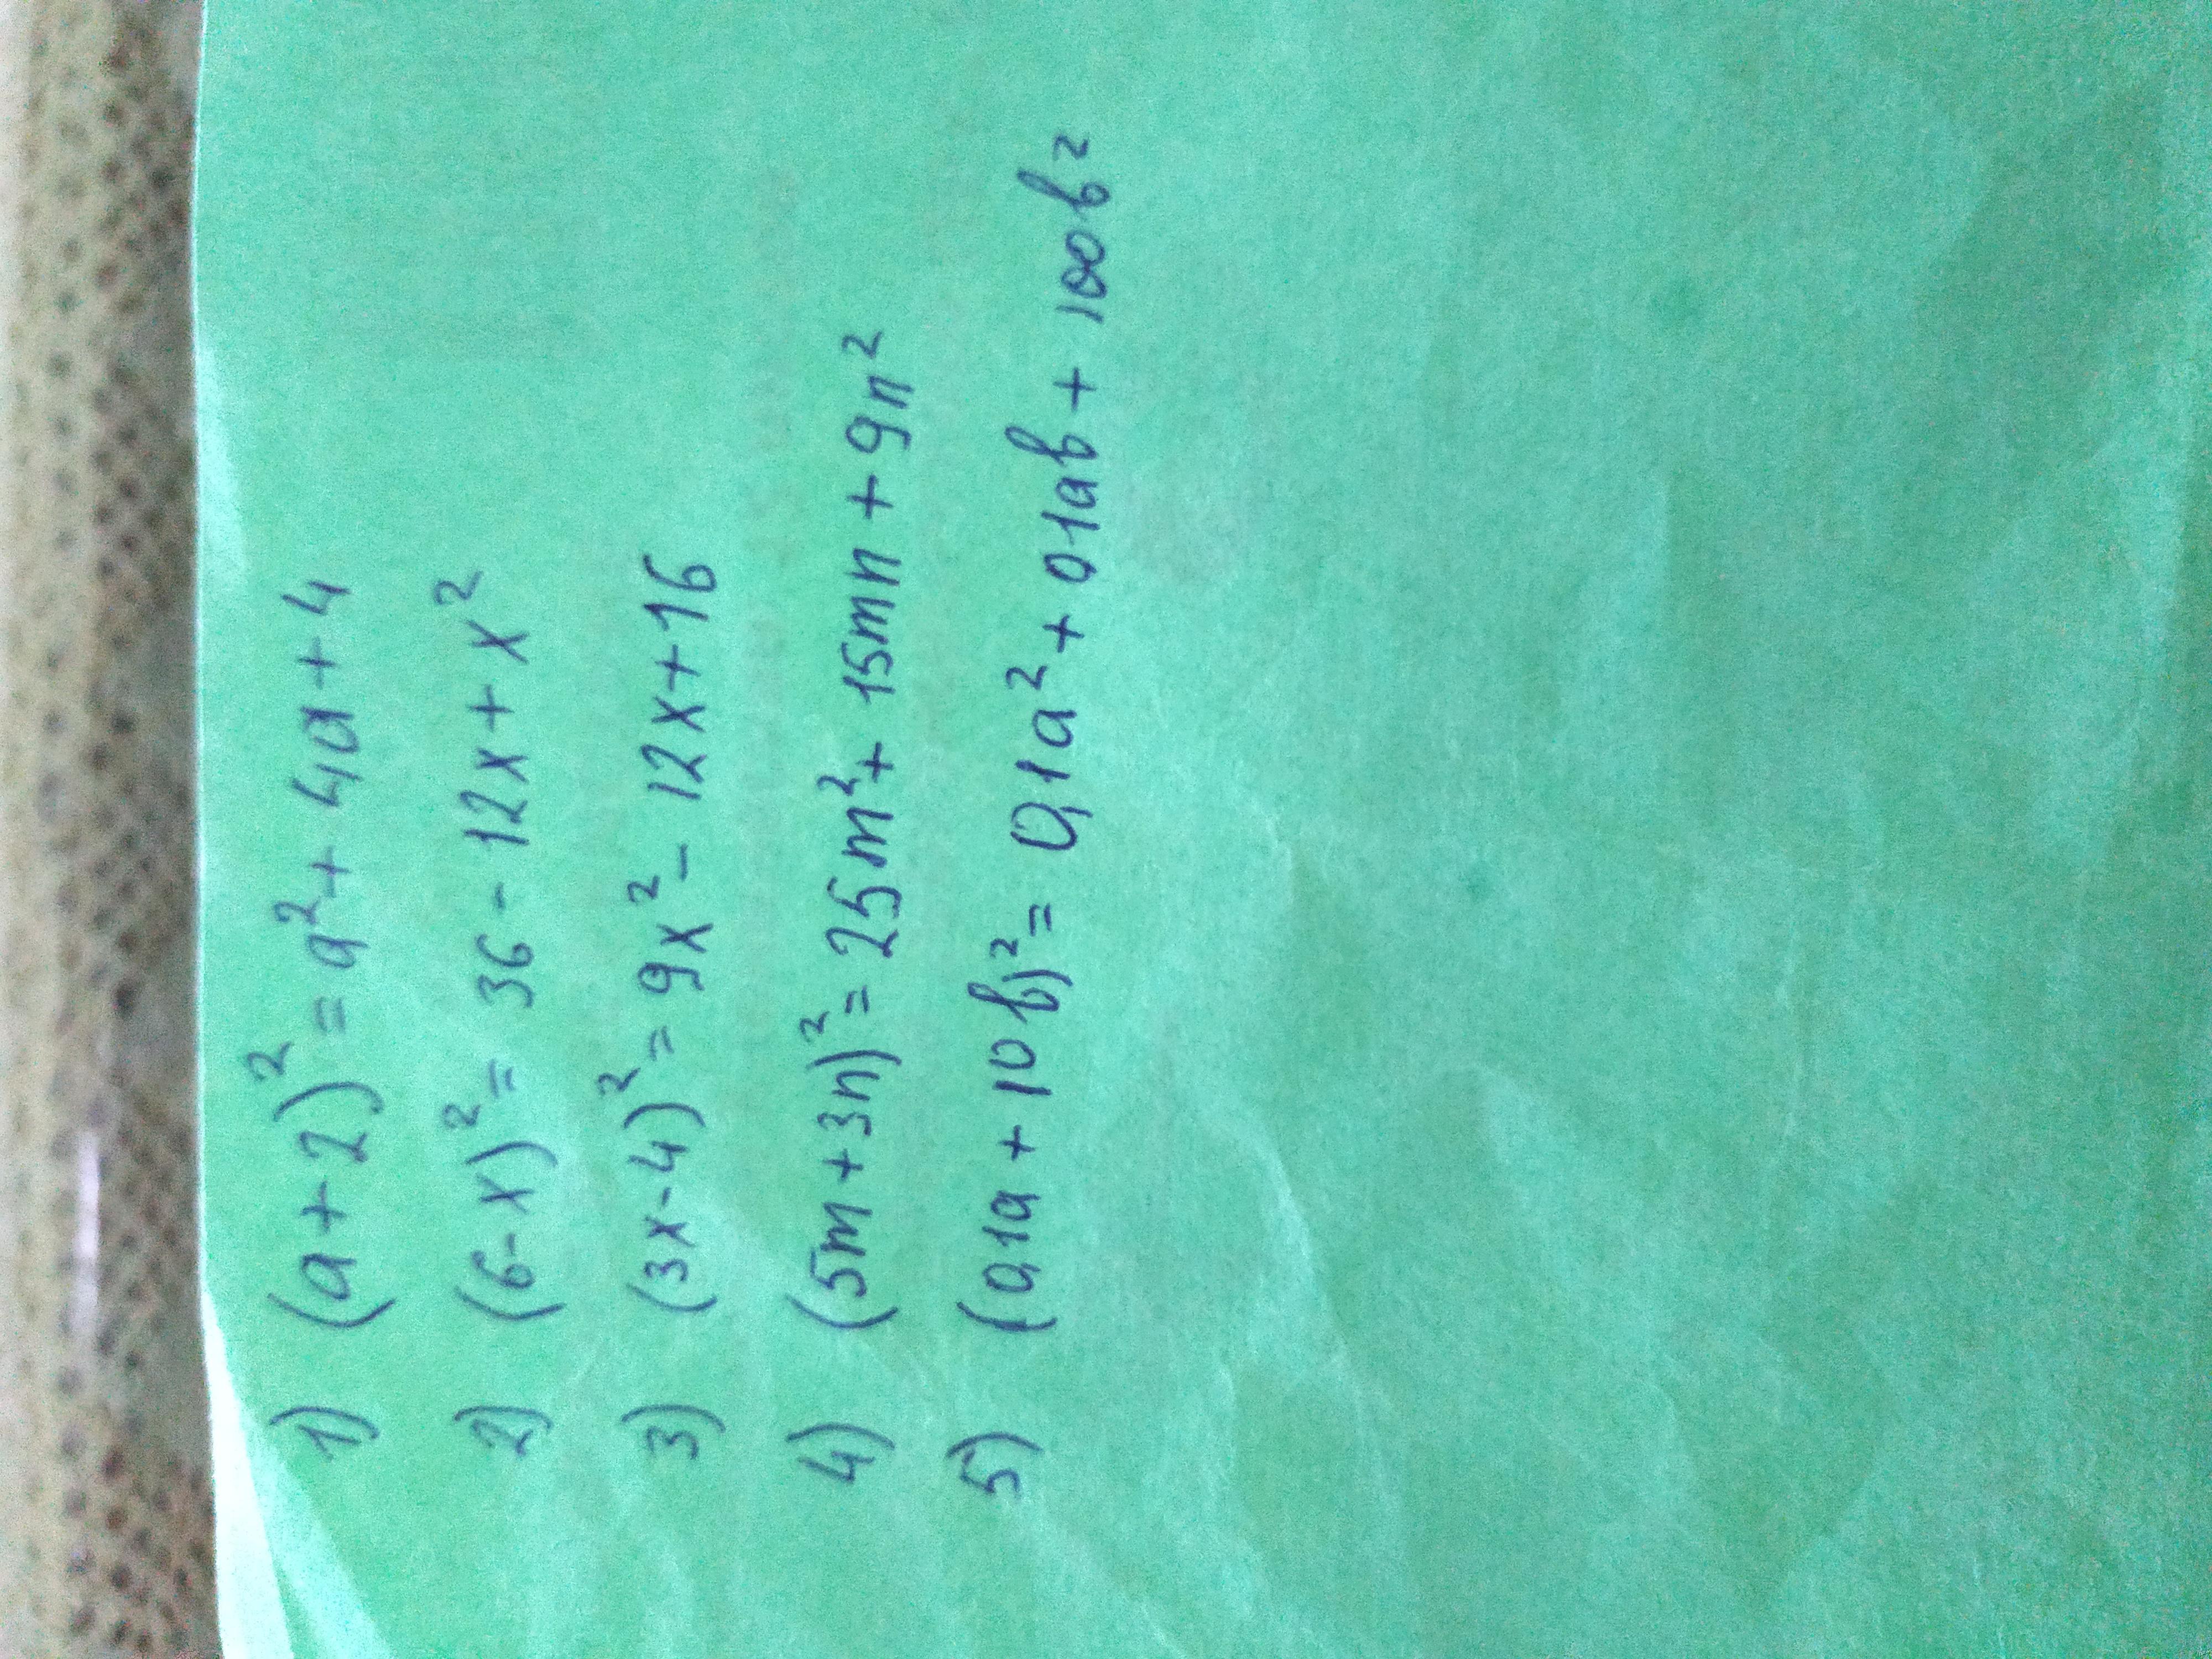 1) (a+2)² = a² + 4a + 4
2) (6-x)² = 36 - 12x + x²
3) (3x-4)² = 9x² - 12x + 16
4) (5m+3n)² = 25m² + 15mn + 9n²
5) (0,1a + 10b)² = 0,1a² + 0,1ab + 100b²